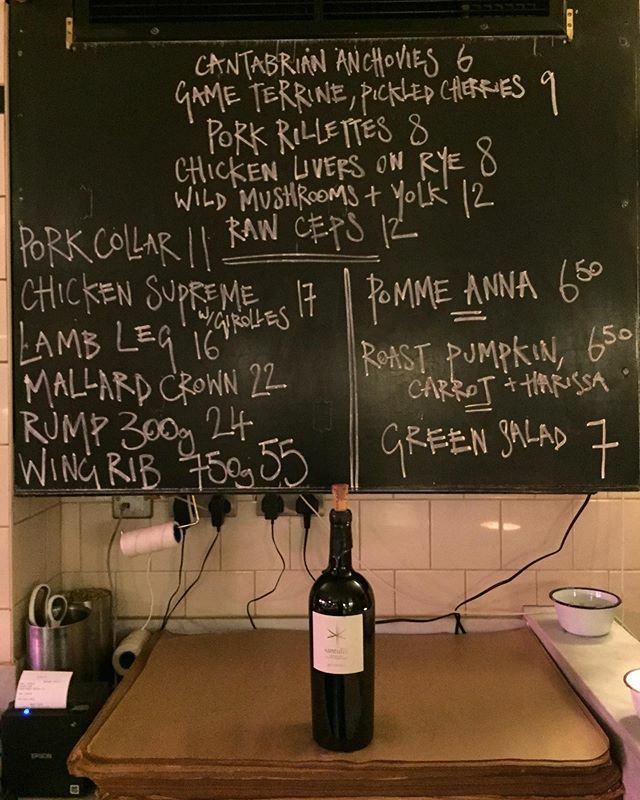 CANTABRIAN ANCHOVIES 6
GAME TERRINE, PICKLED CHERRIES 9
PORK RILLETTES 8
CHICKEN LIVERS ON RYE 8
WILD MUSHROOMS + YOLK 12
RAW CEPS 12
PORK COLLAR 11
CHICKEN SUPREME 17
W/GIROLLES
LAMB LEG 16
MALLARD CROWN 22
RUMP 300g 24
WING RIB 750g 55
POMME ANNA 650
ROAST PUMPKIN, 650
CARROT + HARISSA
GREEN SALAD 7
EPSON